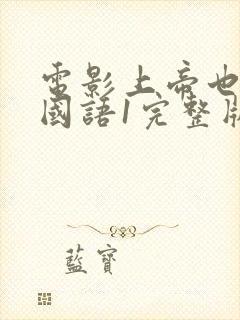 電影上帝也
國語1完整版
藍寶